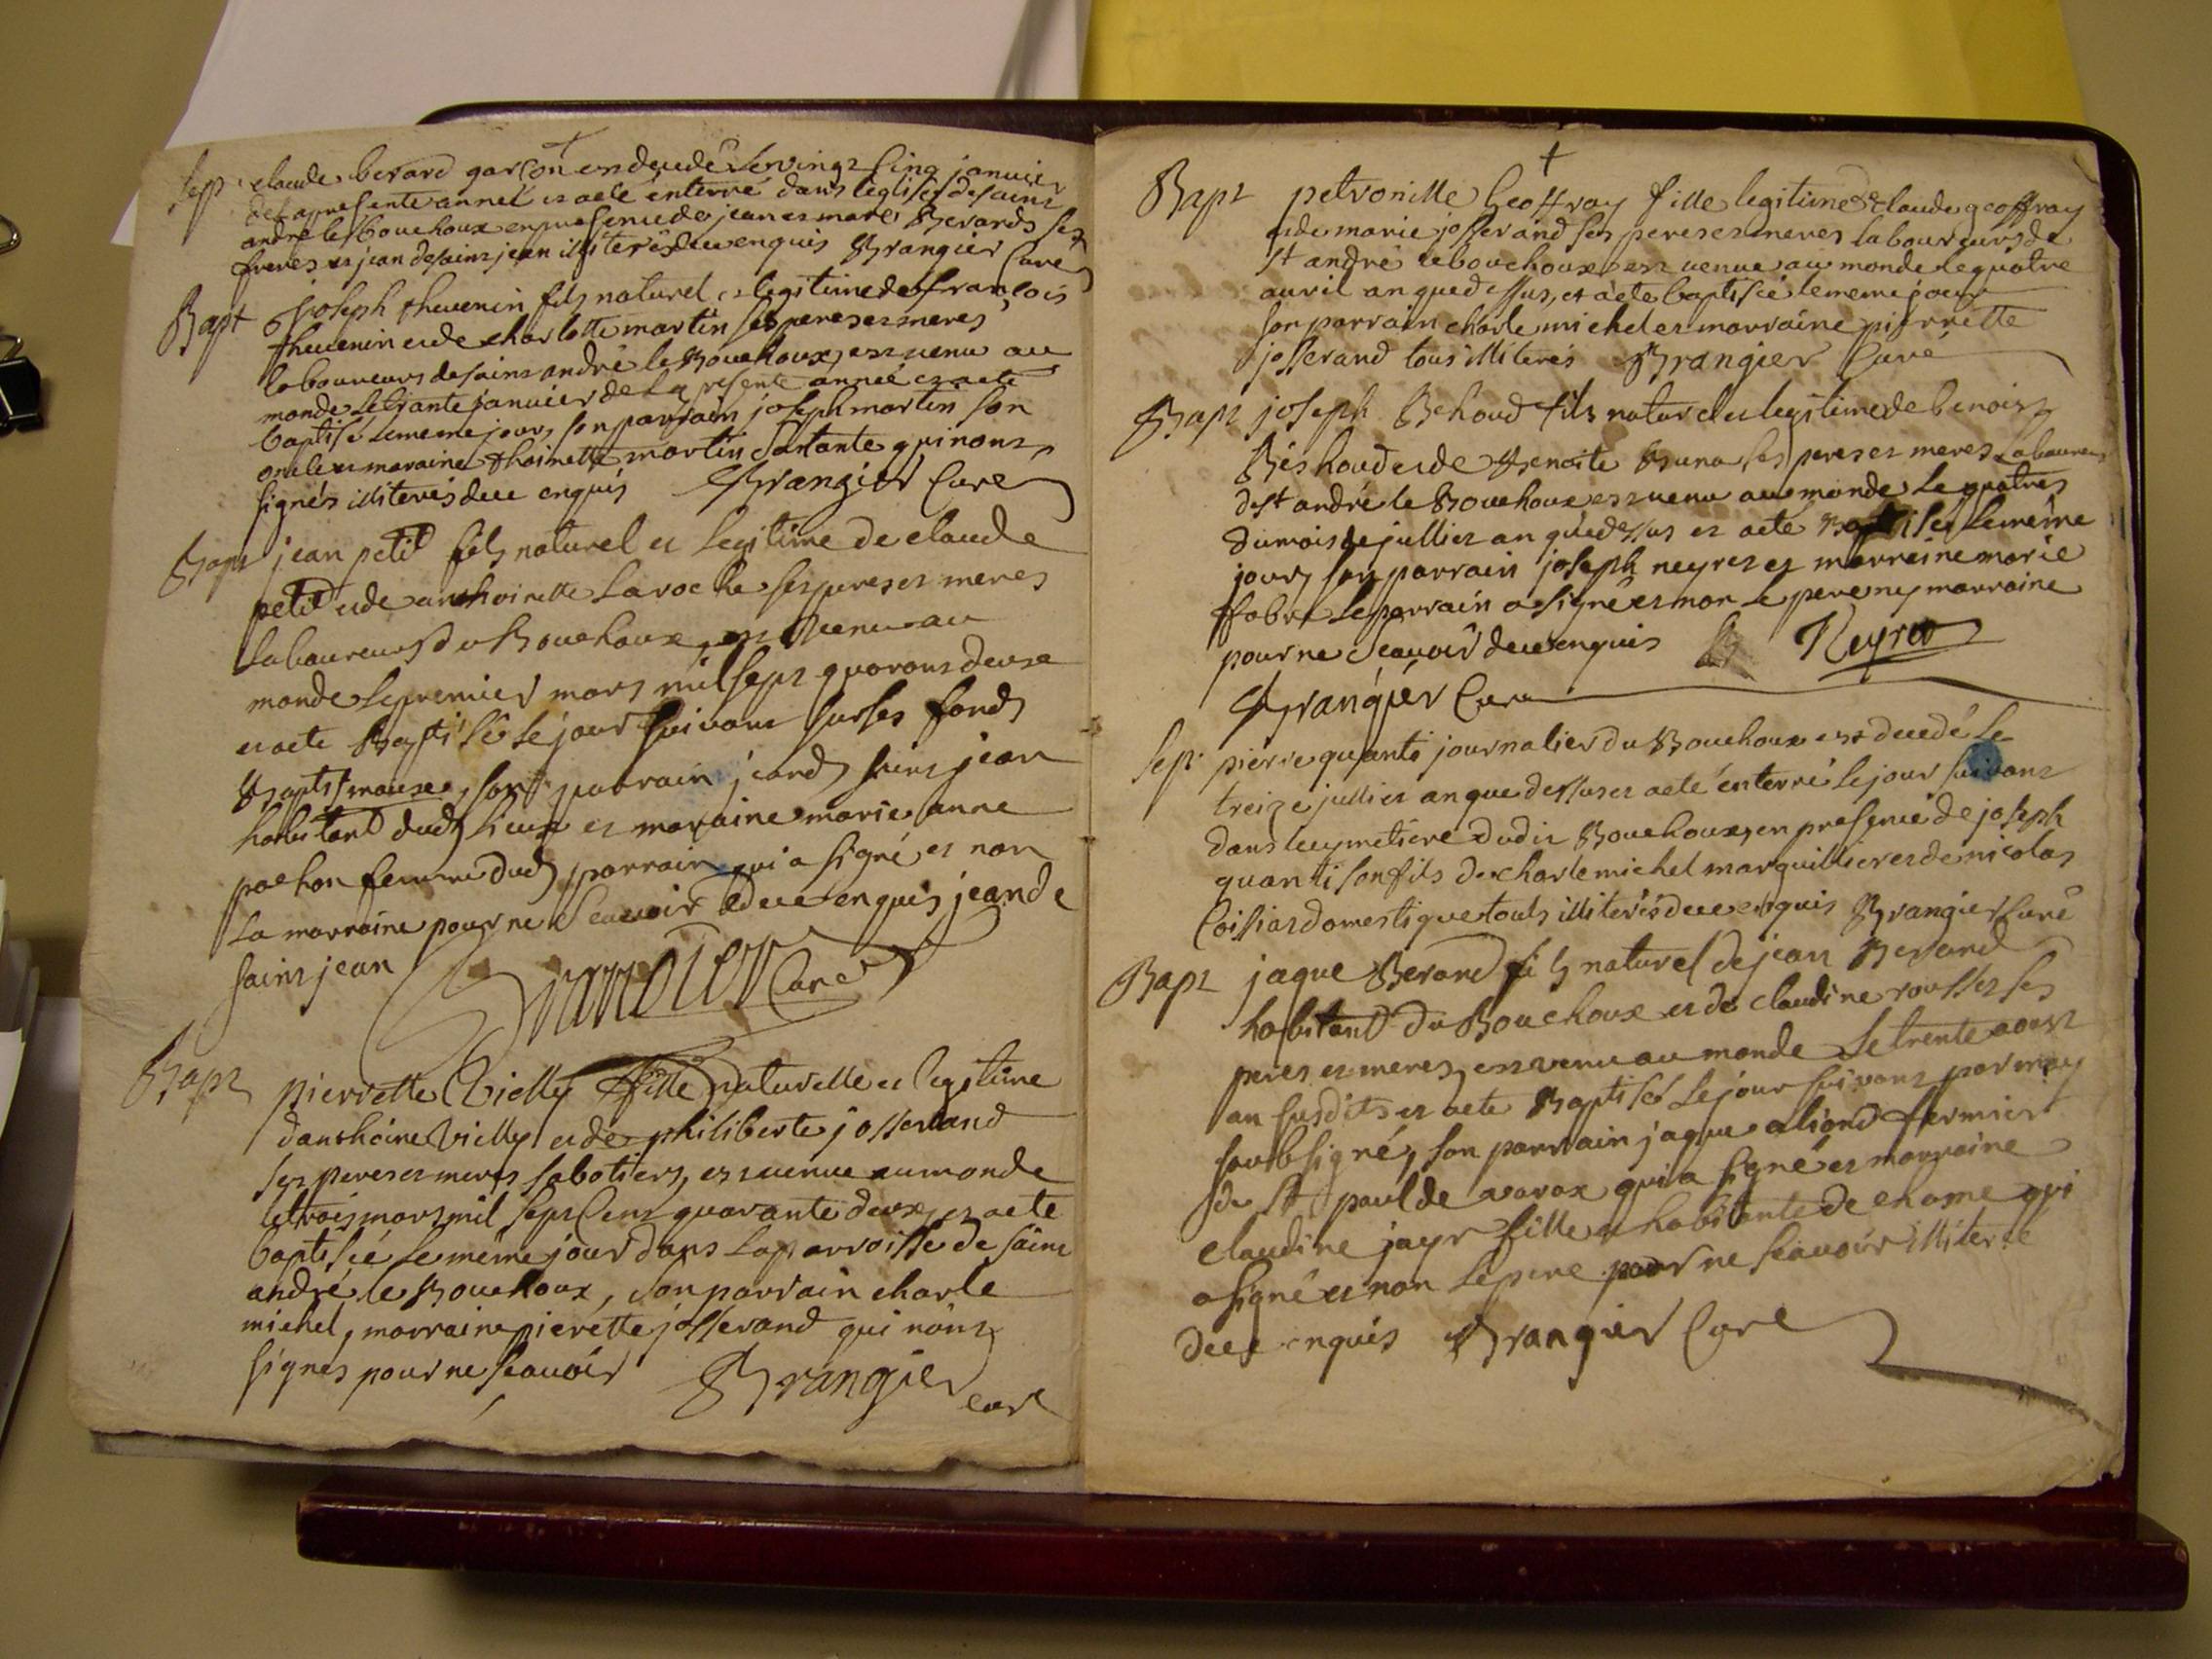 Sep claude berard garcon es decedé le vingt cinq janvier
de la presente anneé et a eté enterré dans l'eglise de saint
andré le Bouchoux en presence de jean et mare Berards ses
freres et jean de saint jean illiterés de ce enquis Brangier Curé
Bapt joseph thevenin fils naturel et legitime de francois
thevenin et de charlotte martin ses peres et meres
laboureurs de saint andré le Bouchoux, est venu au
monde le trante janvier de la presente anneé et a eté
baptisé le meme jour, son parrain joseph martin son
oncle et maraine thoinette martin sa tante qui n'ont
signés illiterés de ce enquis Brangier Curé
Bapt jean petit fils naturel et legitime de claude
petit et de anthoinette Laroche ses peres et meres
laboureurs du Bouchoux, est venu au
monde le premier mars mil sept quarant deux
et a eté Baptisé le jour suivant sur les fonds
Baptismaux, son parrain jean de saint jean
habitant dud lieux et maraine marie anne
pochon femme dud parrain qui a signé et non
la marraine pour ne scavoir de ce enquis jean de
saint jean Brangier Curé
Bapt pierrette Vielly fille naturelle et legitime
d'anthoine Vielly et de philiberte josserand
ses peres et meres sabotiers, est venue au monde
le trois mars mil sept cent quarante deux, et a eté
baptisée le même jour dans la parroisse de saint
andré le Bouchoux, son parrain charle
michel, marraine pierette josserand qui n'ont
signés pour ne scavoir Brangier
curé
Bapt petronille Geoffray fille legitime de claude geoffray
et de marie josserand ses peres et meres laboureurs de
St andré le bouchoux est venue au monde le quatre
avril an que dessus, et a eté baptisée le meme jour
son parrain charle michel et marraine pierrette
josserand tous illiterés Brangier Curé
Bapt joseph Behoud fils naturel et legitime de benoist
Behoud et de Benoite Buna ses peres et meres Laboureurs
de St andré le Bouchoux est venu au monde le quatre
du mois de juillet an que dessus et a eté Baptisé le même
jour, son parrain joseph neyret et marreine marie
fabre le parrain a signé et non le pere ny marraine
pour ne scavoir de ce enquis Neyret
Brangier Curé
Sep pierre quanti journalier du Bouchoux est decedé le
treize juillet an que dessus et a eté enterré le jour suivant
dans le cymetiere dudit Bouchoux, en presence de joseph
quanti son fils de charle michel marguillier et de nicolas
Coissiard domestique touts illiterés de ce enquis Brangier Curé
Bapt jaque Berand fils naturel de jean Berand
habitant du Bouchoux et de claudine rousset ses
peres et meres, est venu au monde le trente aoust
an susdits et a eté Baptisé le jour suivant par moy
soubsigné, son parrain jaque aliond fermier
de St paul de varax qui a signé et marraine
claudine jayr fille habitante de chame qui
a signé et non le pere pour ne scavoir illiteré
de ce enquis Brangier Curé